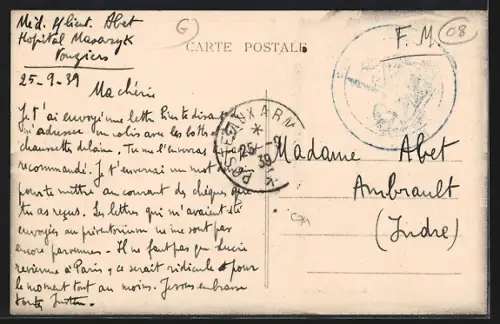 Méd. s/lieut. Abet
Hôpital Masaryk
Vouziers
G
CARTE POSTALE
F. M.
08
25-9-39
Ma chérie
Je t'ai envoyé une lettre
m'adresser un colis avec les bottes
chaussette de laine. Tu me l'enverras
recommandé. Je t'enverrai un mot
pour te mettre au courant des chèques que
tu as reçus. Les lettres qui m'avaient été
envoyées au préventorium ne me sont pas
encore parvenues - Il ne faut pas que Lucie
revienne à Paris, ce serait ridicule pour
le moment tout au moins. Je vous embrasse
POSTE AUX ARM
*
25 - 9
39
Madame Abet
Ambrault
(Indre)